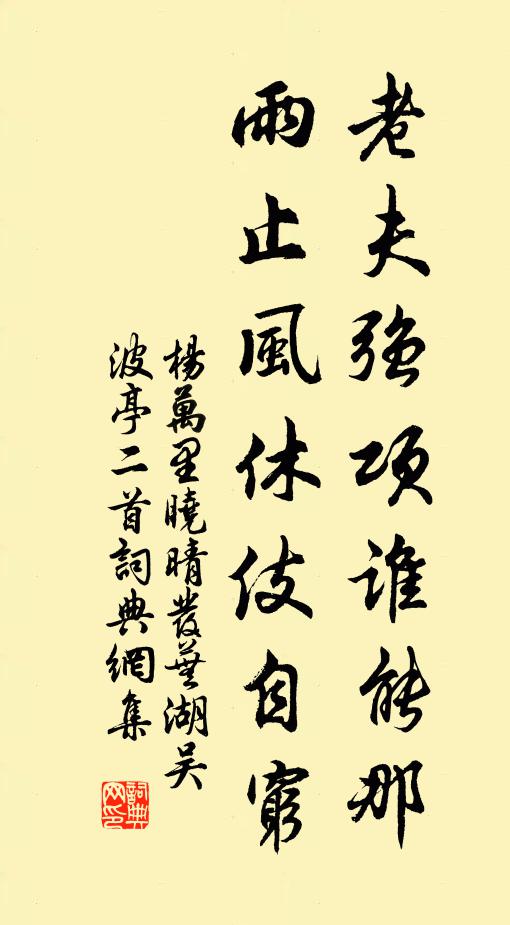 老夫強項誰能那
雨止風休伎自窮
楊萬里曉晴發蕪湖吴
波亭二首詞典網集
詞典
网印